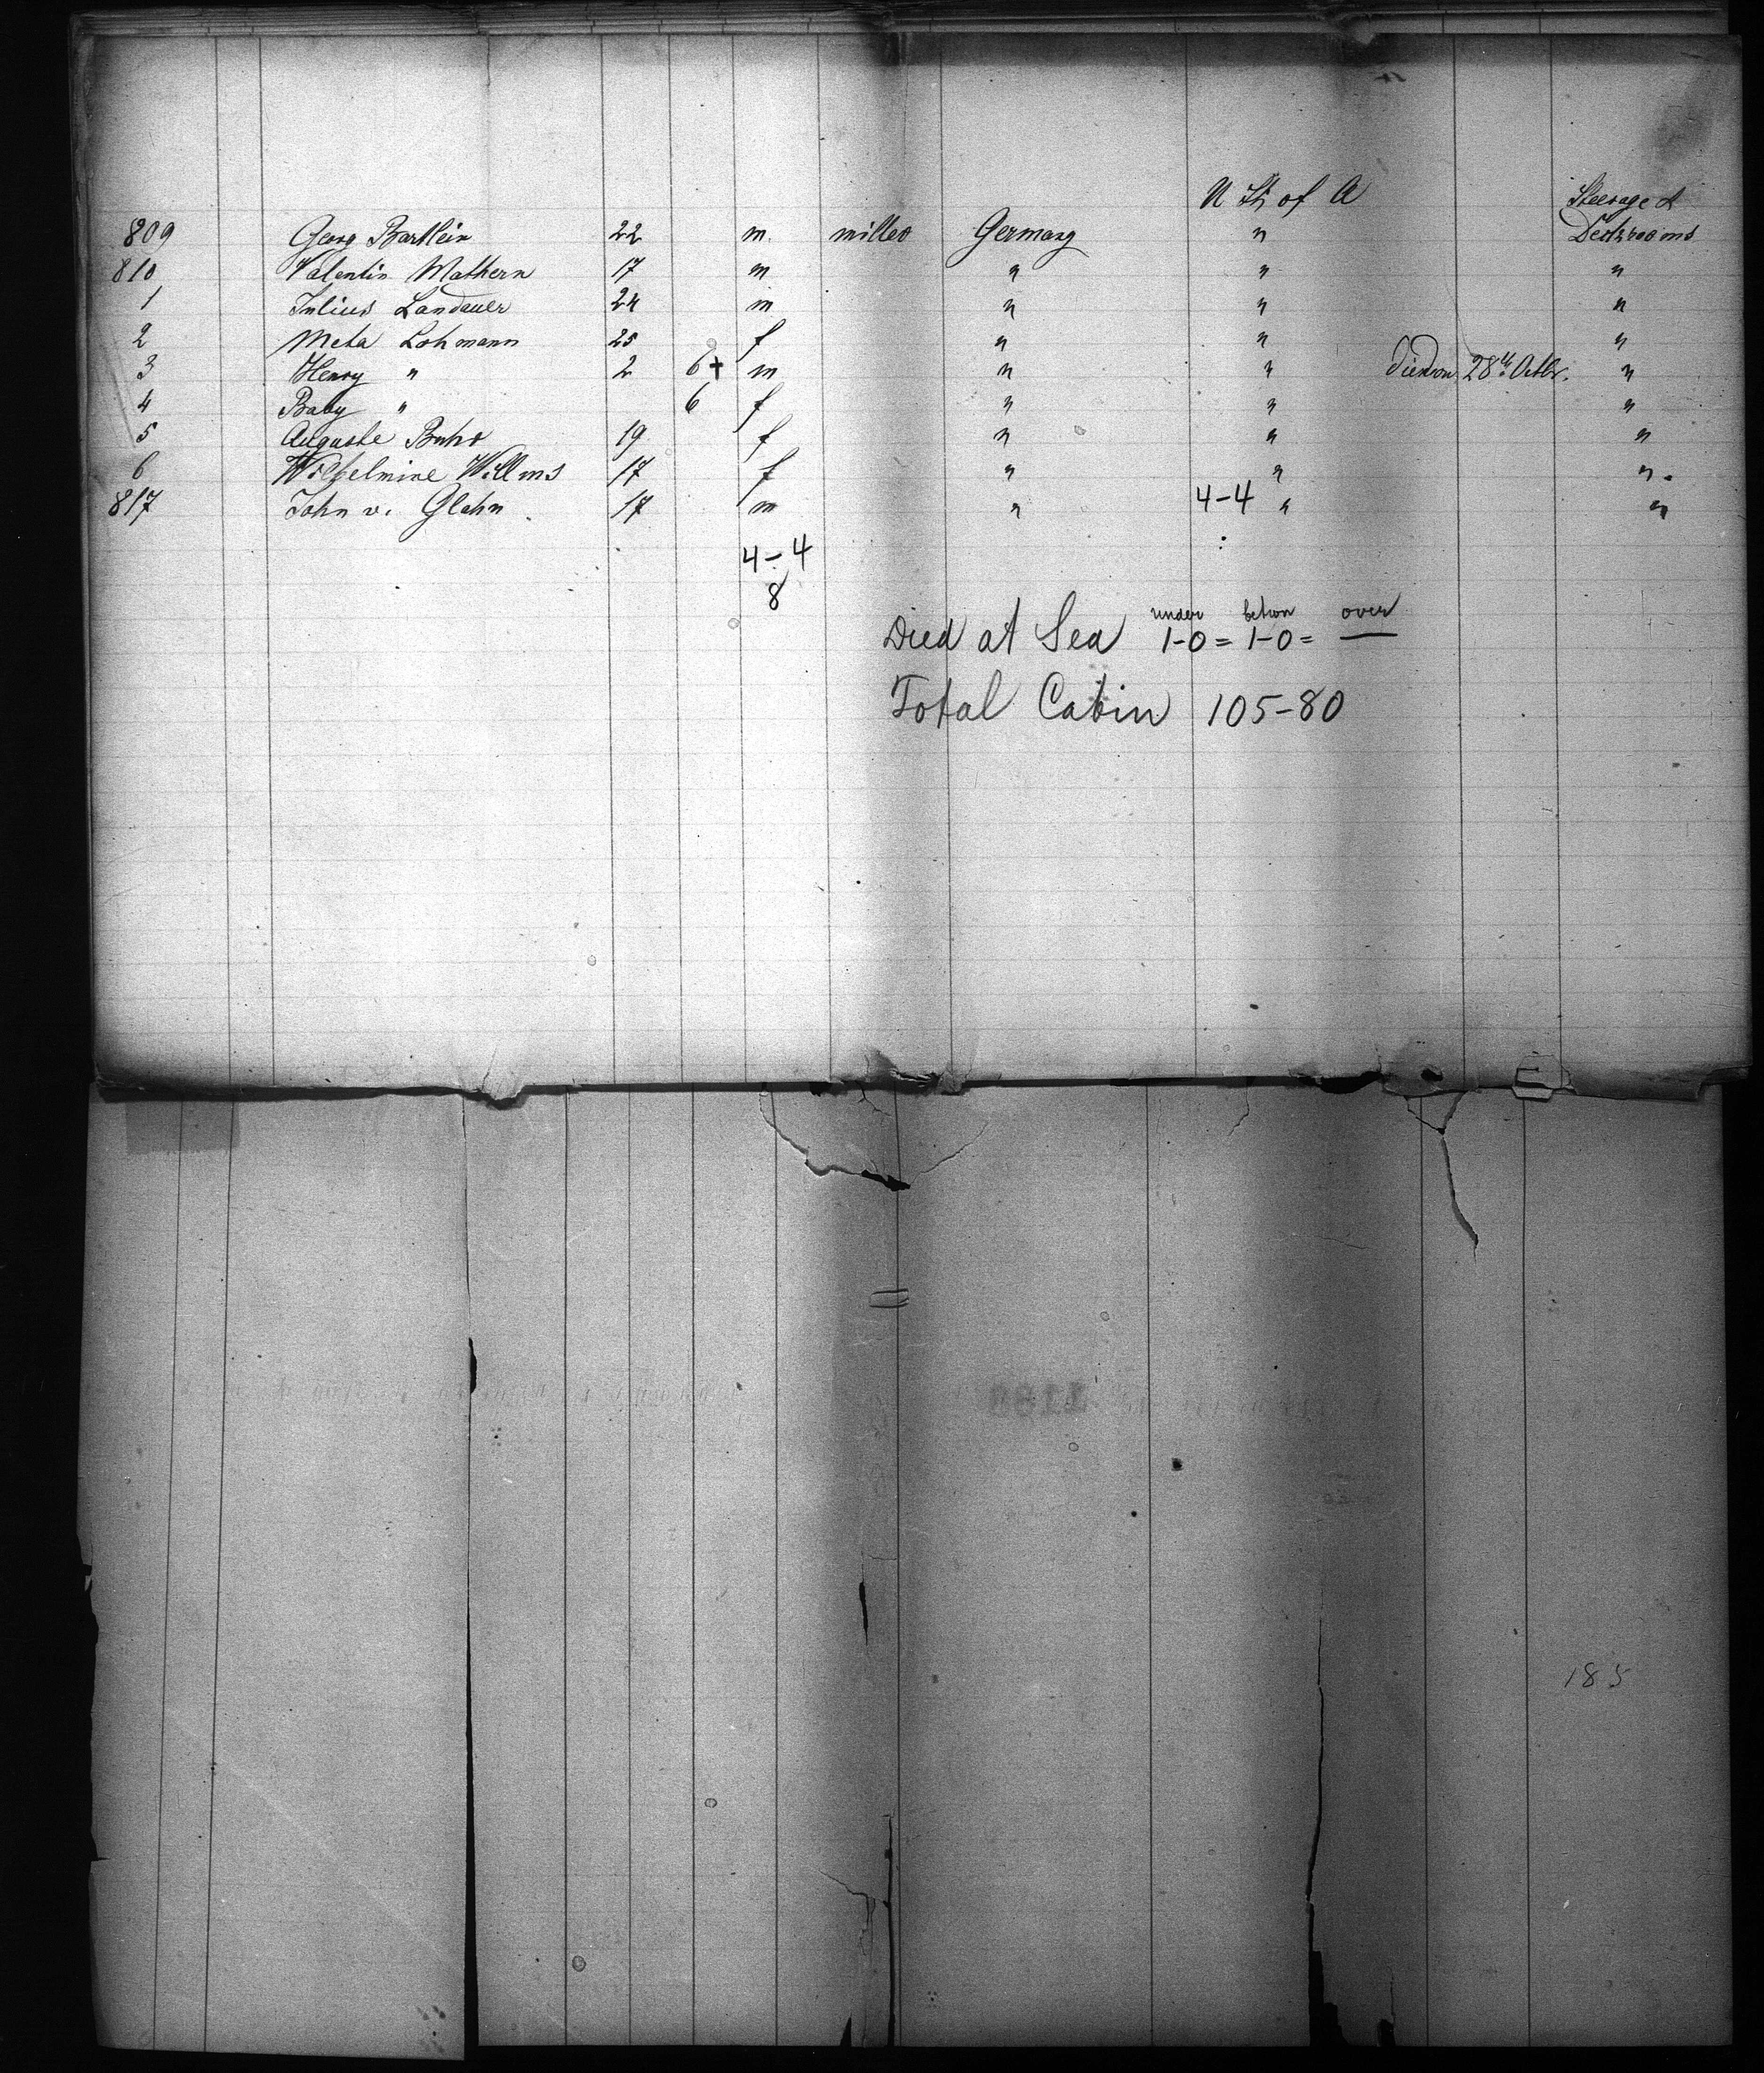 U St. of A Steerage &
809 Georg Bartlein 22 m. miller Germany " Deckrooms
810 Valentin Mathern 17 m " " "
1 Julius Landauer 24 m " " "
2 Meta Lohmann 25 f " " "
3 Henry " 2 6 † m " " died on 28th Octbr. "
4 Baby " 6 f " " "
5 Auguste 19 f " " "
6 Wilhelmine Willms 17 f " " ".
817 John v. Glahn 17 m " 4-4 " "
4-4
8
under betwn over
Died at Sea 1-0= 1-0= —
Total Cabin 105-80
185